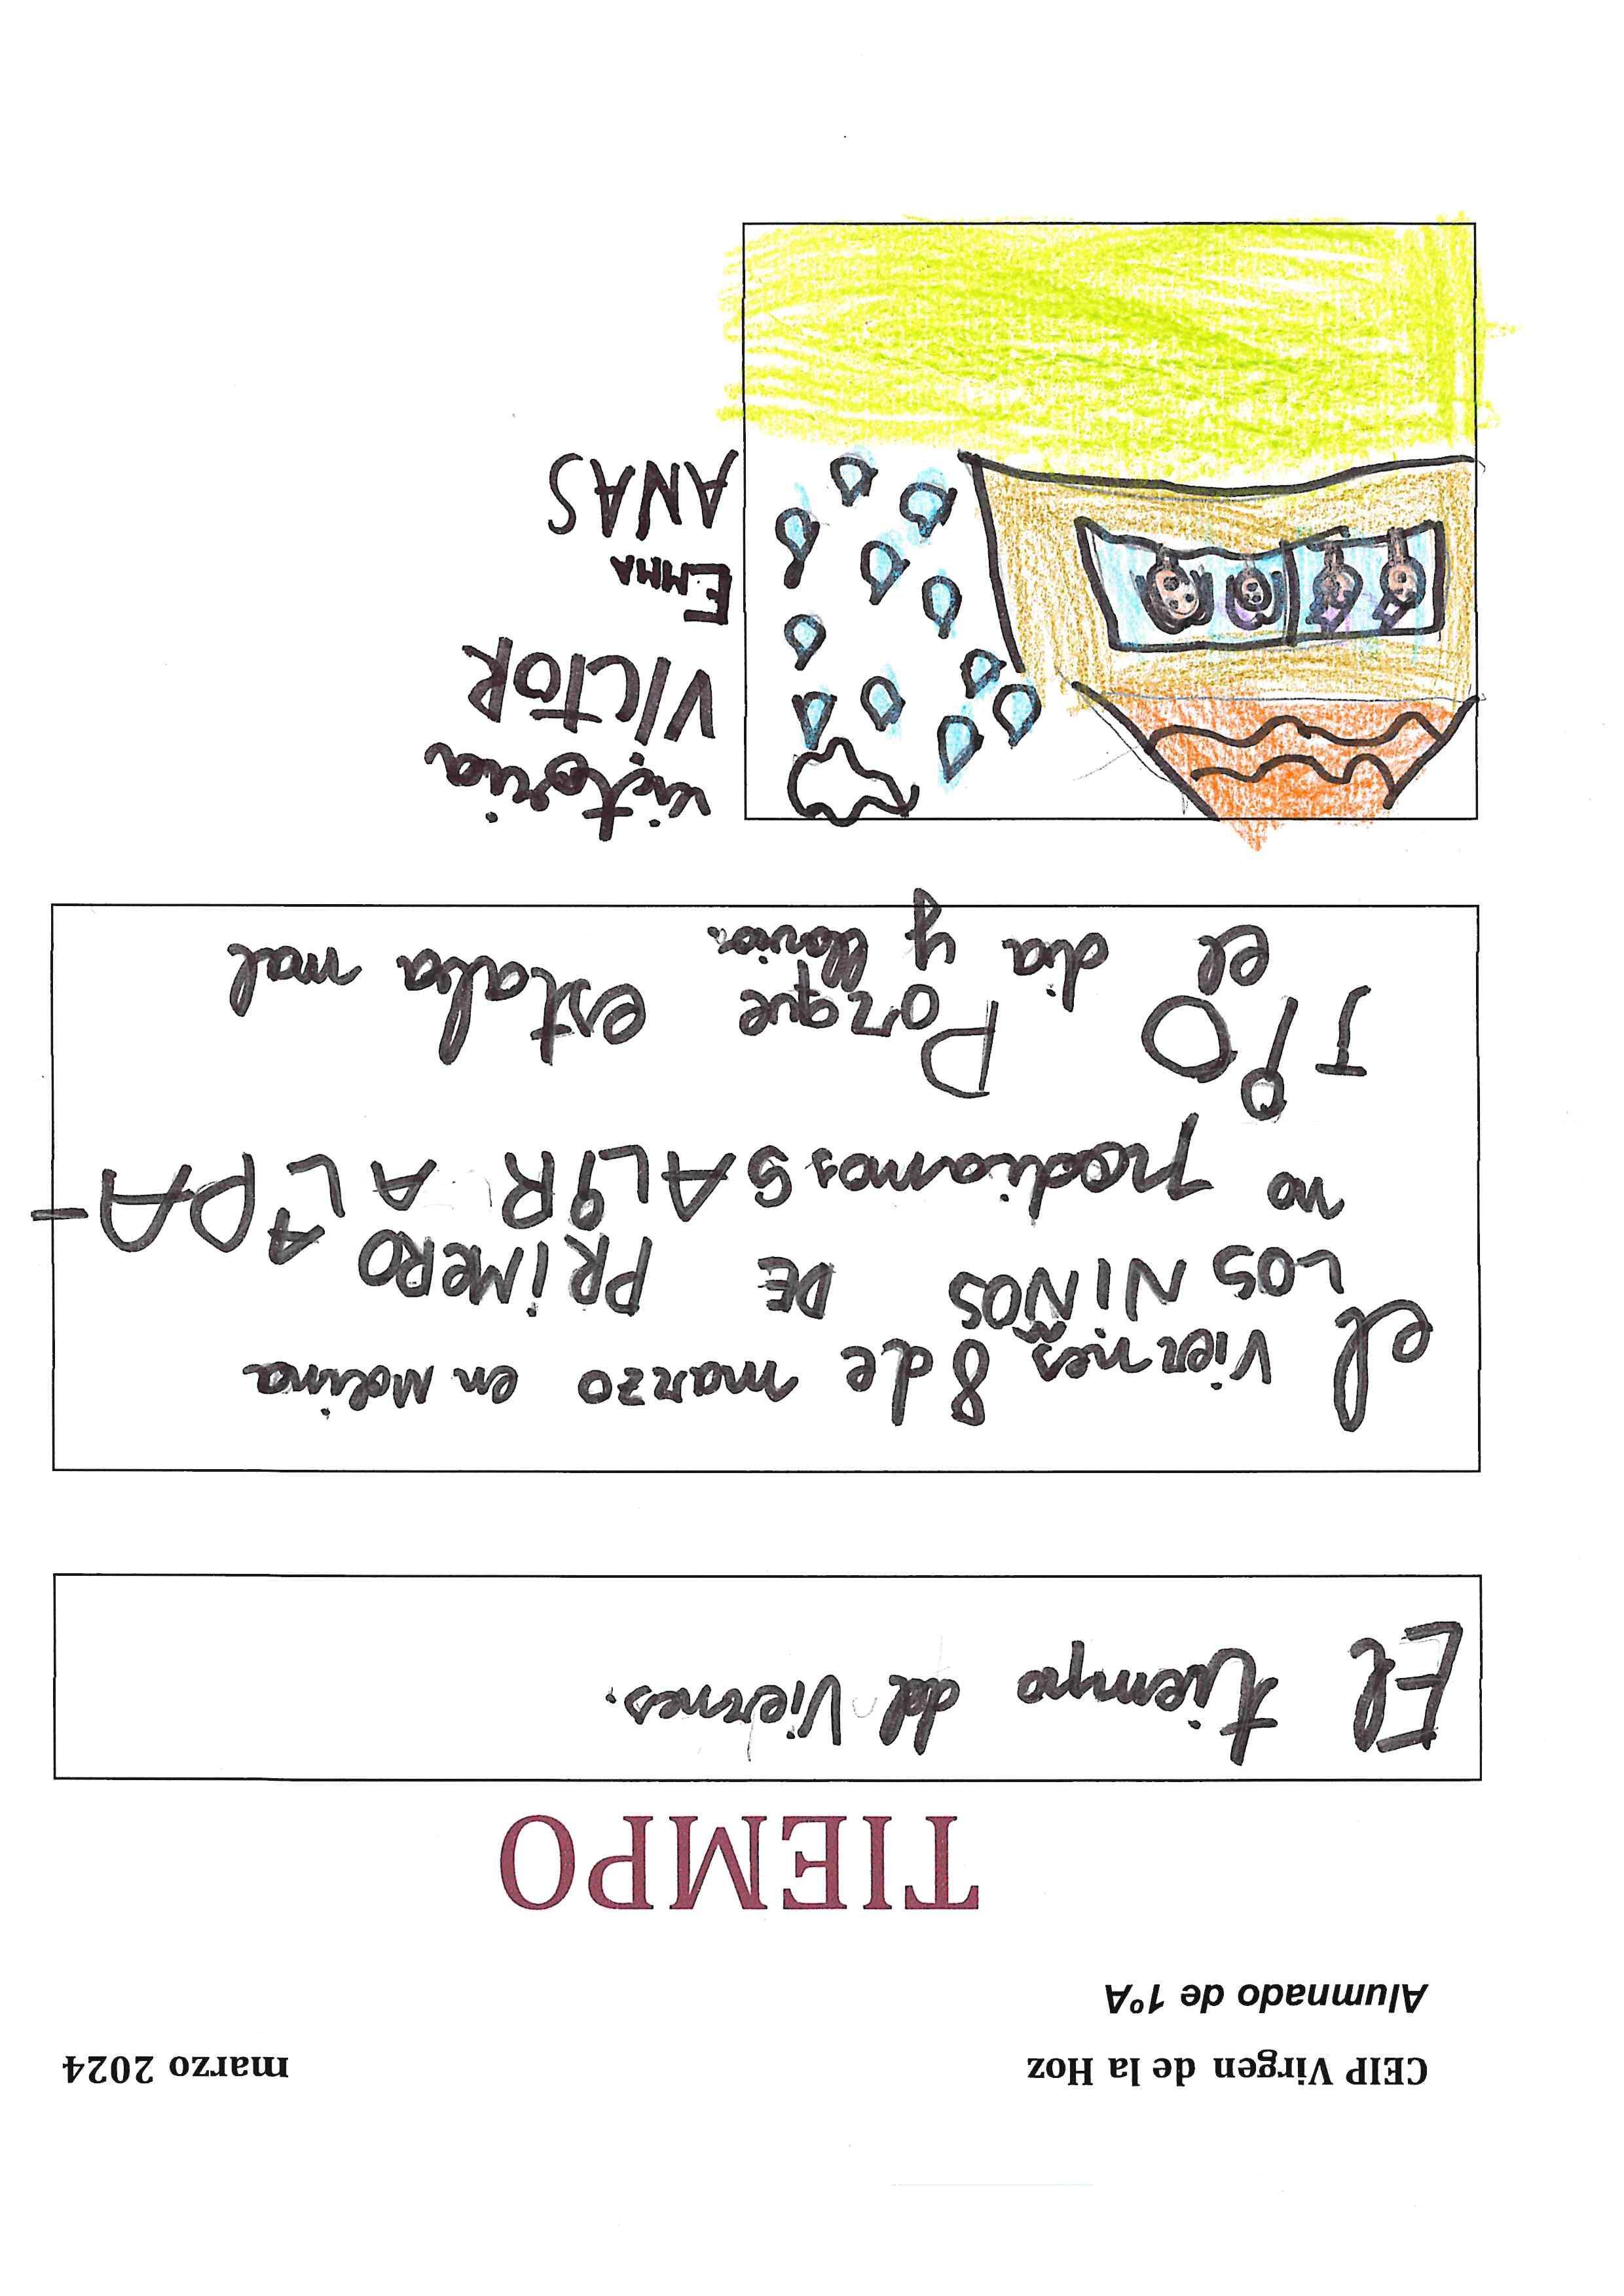 CEIP Virgen de la Hoz marzo 2024
Alumnado de 1ºA
TIEMPO
El tiempo del Viernes.
el viernes 8 de marzo en Molina
LOS NIÑOS DE PRIMERO A
no podiamos SALIR AL PA-
TIO Porque estaba mal
el dia y llovia.
victoria
VICTOR
EMMA
ANAS